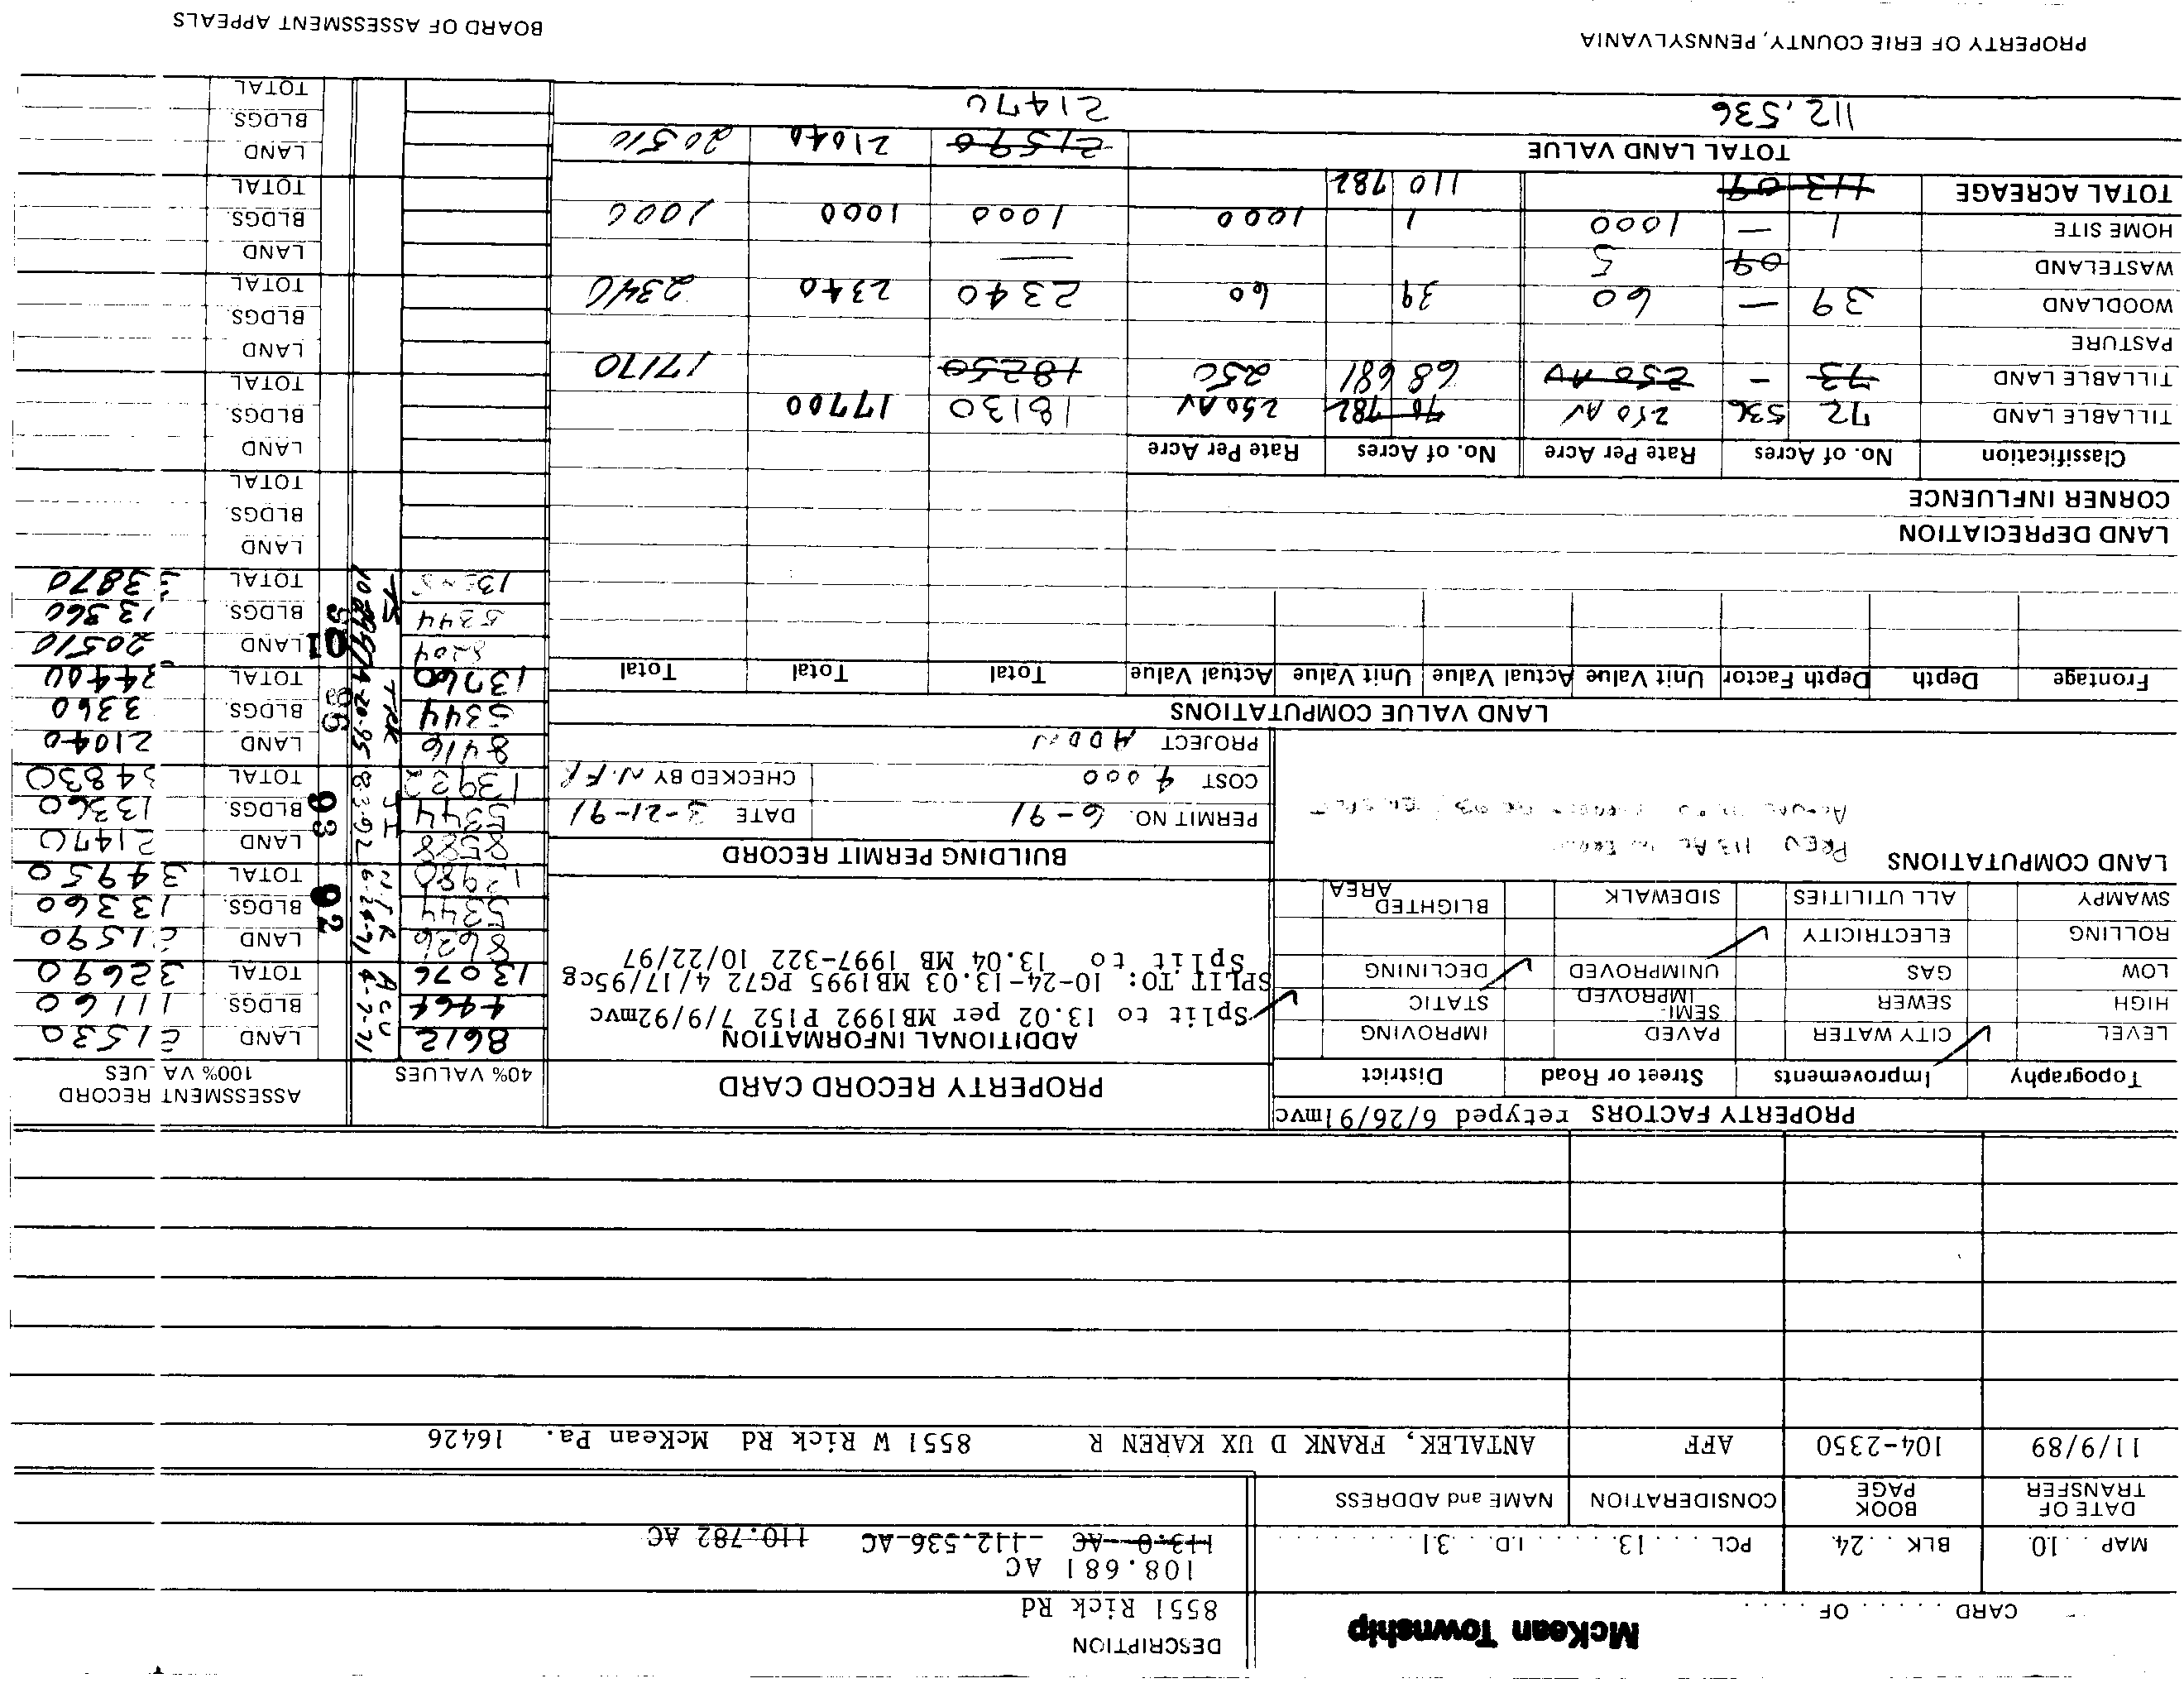 CARD . . . . . . OF . . . . .
McKean Township
DESCRIPTION
8551 Rick Rd
108.681 AC
MAP . . 10. BLK . . 24. PCL . . . . 13. . . . . I.D. . . 31 . . . . . . . . .
113.0 AC 112.536 AC 110.782 AC
DATE OF TRANSFER BOOK PAGE CONSIDERATION NAME and ADDRESS
11/9/89 104-2350 AFF ANTALEK, FRANK D UX KAREN R 8551 W Rick Rd McKean Pa. 16426
PROPERTY FACTORS retyped 6/26/91mvc
Topography Improvements Street or Road District
LEVEL CITY WATER PAVED IMPROVING
HIGH SEWER SEMI-IMPROVED STATIC
LOW GAS UNIMPROVED DECLINING
ROLLING ELECTRICITY
SWAMPY ALL UTILITIES SIDEWALK BLIGHTED AREA
LAND COMPUTATIONS
PREV 113 AC
PROPERTY RECORD CARD
ADDITIONAL INFORMATION
Split to 13.02 per MB1992 P152 7/9/92mvc
SPLIT TO: 10-24-13.03 MB1995 PG72 4/17/95cg
Split to 13.04 MB 1997-322 10/22/97
BUILDING PERMIT RECORD
PERMIT NO. 6-91 DATE 3-21-91
COST 4000 CHECKED BY N.F.R
PROJECT ADDN
40% VALUES ASSESSMENT RECORD 100% VALUES
8612 LAND 21530
4464 BLDGS. 11160
13076 TOTAL 32690
8636 LAND 21590
5344 BLDGS. 13360
13980 92 TOTAL 34950
8588 LAND 21470
5344 93 BLDGS. 13360
13932 TOTAL 34830
8416 LAND 21040
5344 96 BLDGS. 3360
13760 TOTAL 34400
8204 LAND 20510
5344 BLDGS. 13360
TOTAL 33870
LAND
BLDGS.
TOTAL
LAND
BLDGS.
TOTAL
LAND
BLDGS.
TOTAL
LAND
BLDGS.
TOTAL
LAND
BLDGS.
TOTAL
LAND VALUE COMPUTATIONS
Frontage Depth Depth Factor Unit Value Actual Value Unit Value Actual Value Total Total Total
LAND DEPRECIATION
CORNER INFLUENCE
Classification No. of Acres Rate Per Acre No. of Acres Rate Per Acre
TILLABLE LAND 72 536 250 AV 70 782 250 AV 18130 17700
TILLABLE LAND 73 - 250 AV 68 681 250 18250 17170
PASTURE
WOODLAND 39 — 60 39 60 2340 2340 2340
WASTELAND 09 5 —
HOME SITE 1 — 1000 1 1000 1000 1000 1000
TOTAL ACREAGE 113 09 110 782
TOTAL LAND VALUE 21590 21040 20510
112.536 21470
PROPERTY OF ERIE COUNTY, PENNSYLVANIA
BOARD OF ASSESSMENT APPEALS